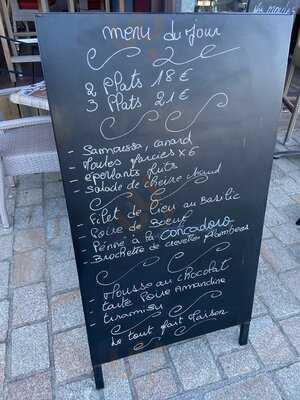 menu du jour
2 Plats 18€
3 Plats 21€
- Samoussa, canard
- Moules farcies x6
- éperlants frits
- Salade de chèvre chaud
- Filet de lieu au Basilic
- Poire de Boeuf
- Penne à la CONCADORO
- Brochette de crevettes flambées
- Mousse au chocolat
- tarte Poire Amandine
- tiramisu
Le tout fait Maison